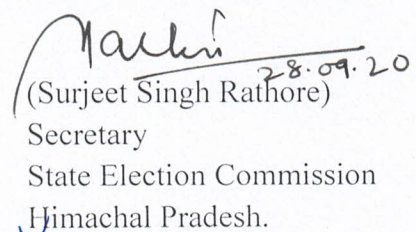 28.09.20
(Surjeet Singh Rathore)
Secretary
State Election Commission
Himachal Pradesh.